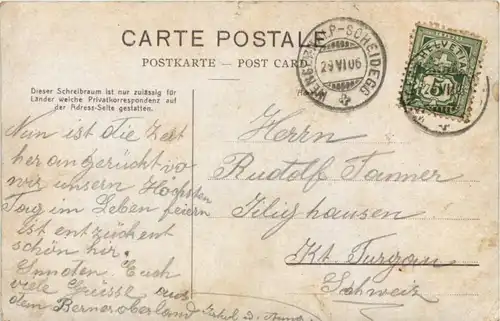 CARTE POSTALE
POSTKARTE — POST CARD
Dieser Schreibraum ist nur zulässig für
Länder welche Privatkorrespondenz auf
der Adress-Seite gestatten.
WENGERNALP-SCHEIDEGG
29 VI 06
HELVETIA
Nun ist die Zeit
herangerückt wo
wir unsern Hochsten
Tag im Leben feiern
ist entzückent
schön hir.
Euch
viele Grüsse aus
dem Berneroberland
Herrn
Rudolf Tanner
Kt. Turgau
Schweiz